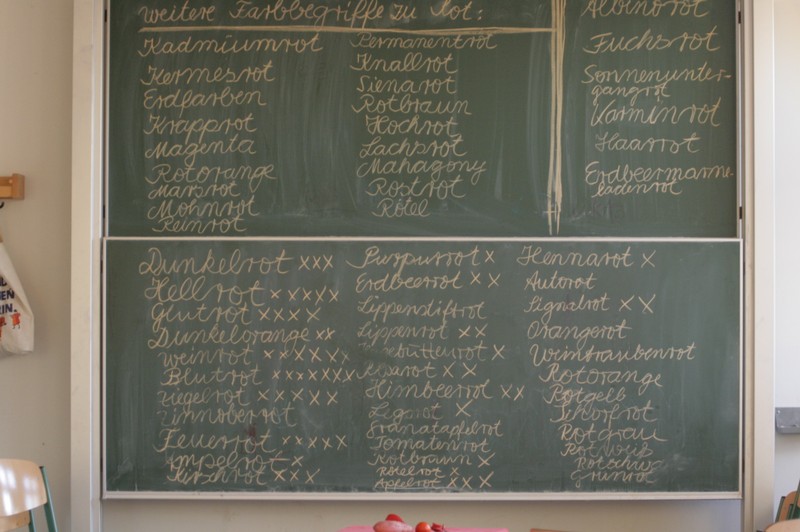 weitere Farbbegriffe zu Rot:
Kadmiumrot
Kermesrot
Erdfarben
Krapprot
Magenta
Rotorange
Marsrot
Mohnrot
Reinrot
Permanentrot
Knallrot
Sienarot
Rotbraun
Hochrot
Lachsrot
Mahagony
Rostrot
Rötel
Albinorot
Fuchsrot
Sonnenunter-
gangrot
Karminrot
Haarrot
Erdbeermarme-
ladenrot
Dunkelrot xxx
Hellrot xxxxx
Glutrot xxxx
Dunkelorange xx
weinrot xxxxxx
Blutrot xxxxxxx
Ziegelrot xxxxx
Zinnoberrot
Feuerrot xxxxx
Ampelrot x
Kirschrot xxx
Purpurrot x
Erdbeerrot xx
Lippenstiftrot
Lippenrot xx
Himbeerrot xx
Granatapfelrot
Tomatenrot
Rotbraun x
Rötelrot x
Apfelrot xxx
Hennarot x
Autorot
Signalrot xx
Orangerot
Weintraubenrot
Rotorange
Rotgelb
Rotgrau
Rotweiß
EN
IN.